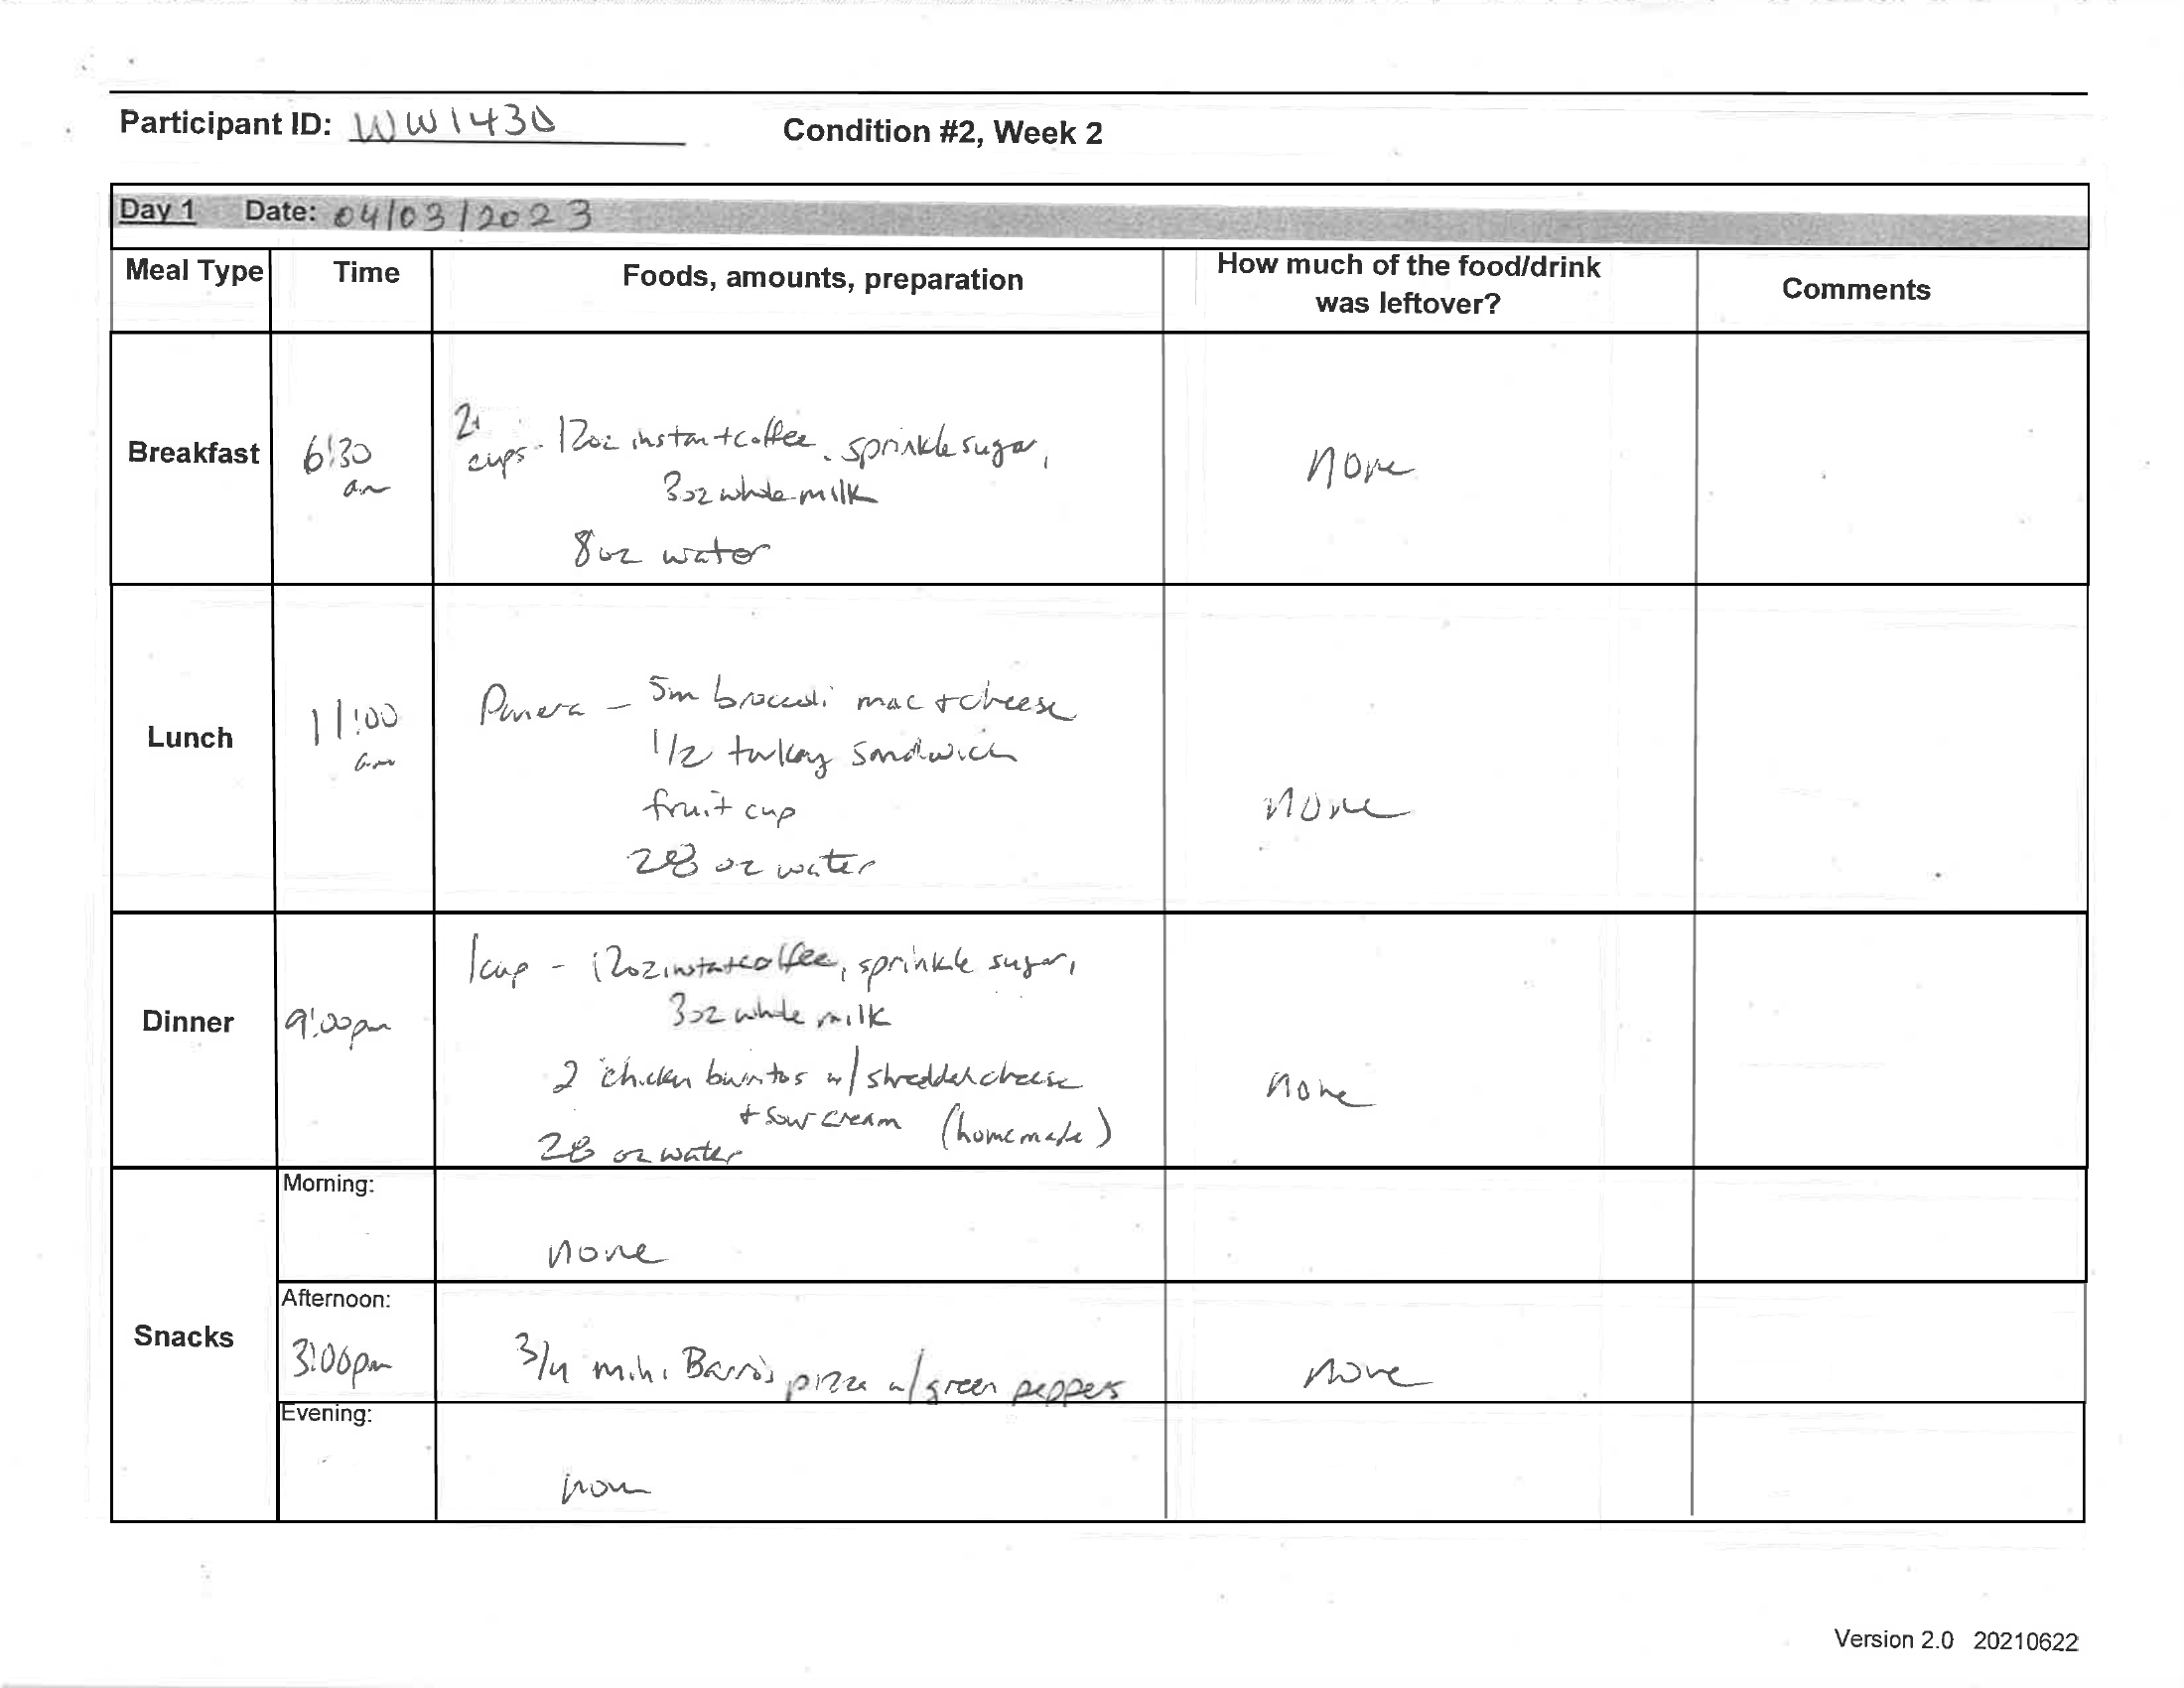 Participant ID: WW1430
Condition #2, Week 2
Day 1 Date: 04/03/2023
Meal Type Time Foods, amounts, preparation How much of the food/drink was leftover? Comments
Breakfast
6:30
am
2
cups - 12oz instant coffee, sprinkle sugar,
3oz whole milk
8oz water
none
Lunch
11:00
am
Panera - sm broccoli mac + cheese
1/2 turkey sandwich
fruit cup
28 oz water
none
Dinner
9:00pm
1cup - 12oz instant coffee, sprinkle sugar,
3oz whole milk
2 chicken burritos w/ shredded cheese
+ sour cream (homemade)
28 oz water
none
Snacks
Morning:
none
Afternoon:
3:00pm
3/4 mini Barro's pizza w/ green peppers
none
Evening:
none
Version 2.0 20210622